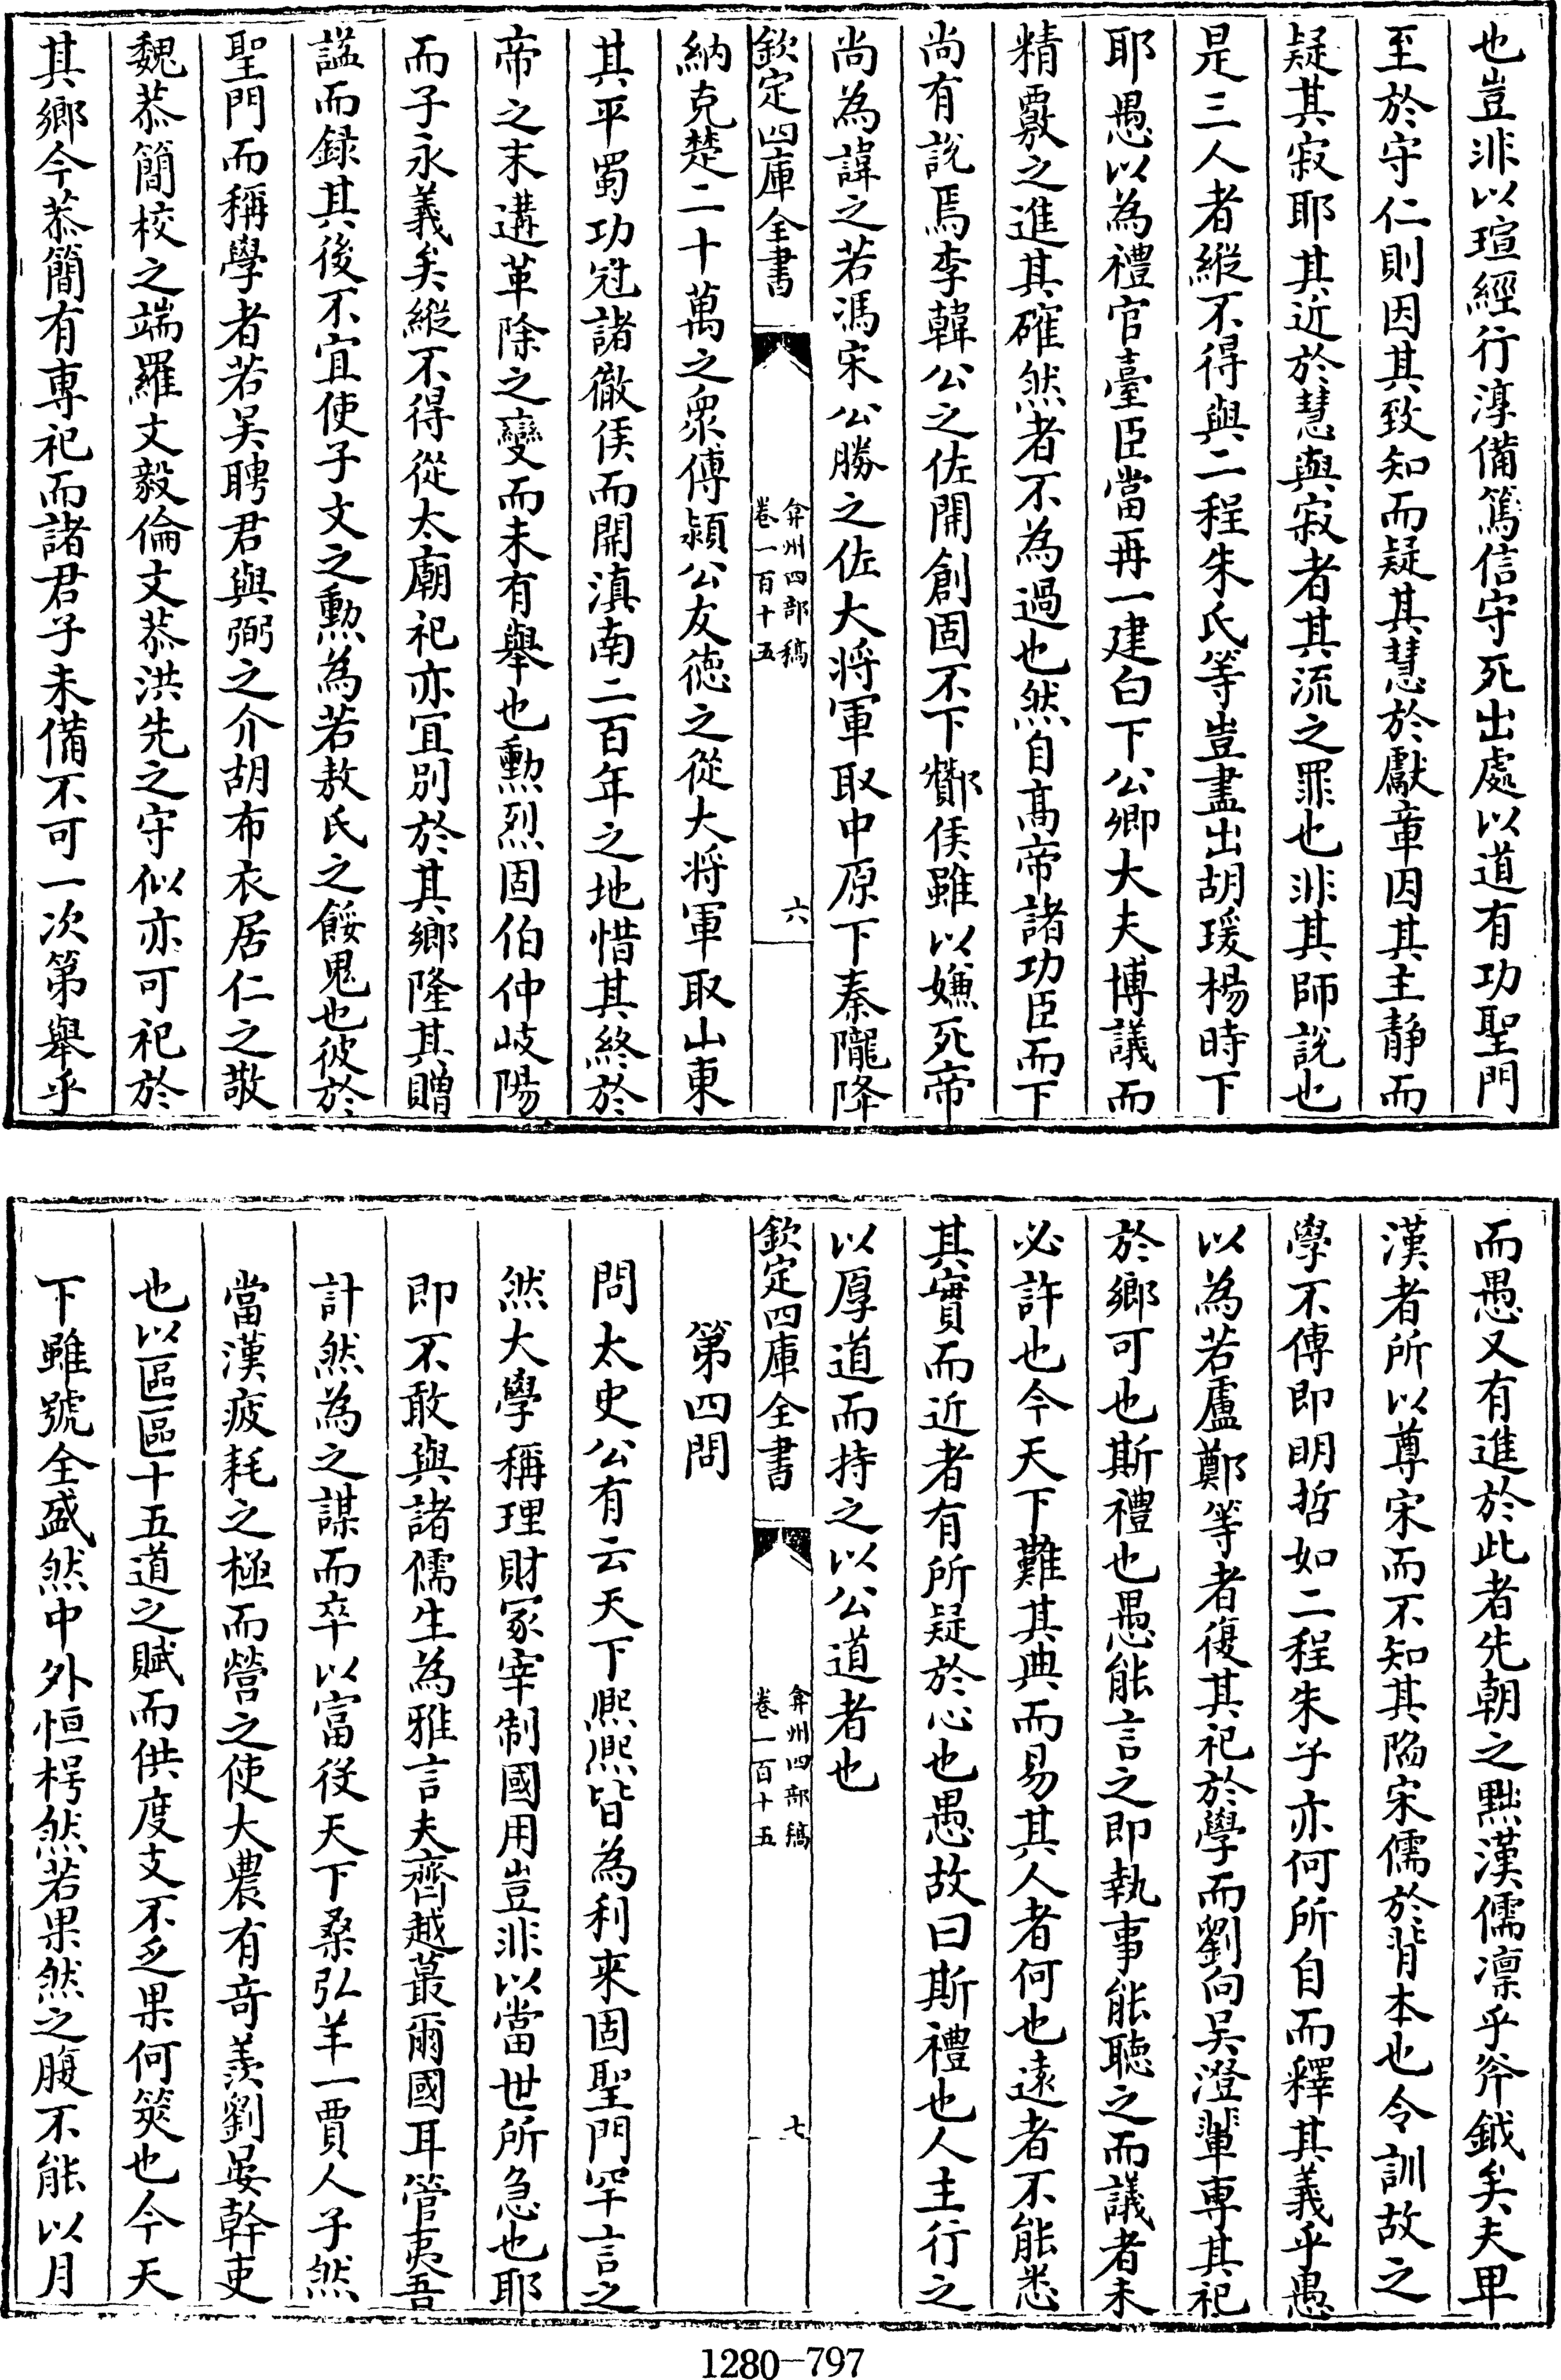 也豈非以瑄經行淳備篤信守死出處以道有功聖門
至於守仁則因其致知而疑其慧於獻章因其主靜而
疑其寂耶其近於慧與寂者其流之罪也非其師說也
是三人者縱不得與二程朱氏等豈盡出胡瑗楊時下
耶愚以為禮官臺臣當再一建白下公卿大夫博議而
精覈之進其確然者不為過也然自髙帝諸功臣而下
尚有說焉李韓公之佐開創固不下酇侯雖以嫌死帝
尚為諱之若馮宋公勝之佐大將軍取中原下秦隴降
欽定四庫全書
弇州四部稿
卷一百十五
六
納克楚二十萬之衆傅潁公友徳之從大將軍取山東
其平蜀功冠諸徹侯而開滇南二百年之地惜其終於
帝之末遘革除之變而未有舉也勲烈固伯仲岐陽
而子永義矣縱不得從太廟祀亦宜別於其鄉隆其贈
諡而録其後不宜使子文之勲為若敖氏之餒鬼也彼於
聖門而稱學者若吳聘君與弼之介胡布衣居仁之敬
魏恭簡校之端羅文毅倫文恭洪先之守似亦可祀於
其鄉今恭簡有専祀而諸君子未備不可一次第舉乎
而愚又有進於此者先朝之黜漢儒凛乎斧鉞矣夫甲
漢者所以尊宋而不知其陷宋儒於背本也令訓故之
學不傳即明哲如二程朱子亦何所自而釋其義乎愚
以為若盧鄭等者復其祀於學而劉向吴澄輩専其祀
於鄉可也斯禮也愚能言之即執事能聴之而議者未
必許也今天下難其典而易其人者何也遠者不能悉
其實而近者有所疑於心也愚故曰斯禮也人主行之
以厚道而持之以公道者也
欽定四庫全書
弇州四部稿
卷一百十五
七
第四問
問太史公有云天下熈熈皆為利來固聖門罕言之
然大學稱理財冢宰制國用豈非以當世所急也耶
即不敢與諸儒生為雅言夫齊越蕞爾國耳管夷吾
計然為之謀而卒以富彊天下桑弘羊一賈人子然
當漢疲耗之極而營之使大農有竒羨劉晏幹吏
也以區區十五道之賦而供度支不乏果何筴也今天
下雖號全盛然中外恒枵然若果然之腹不能以月
1280-797